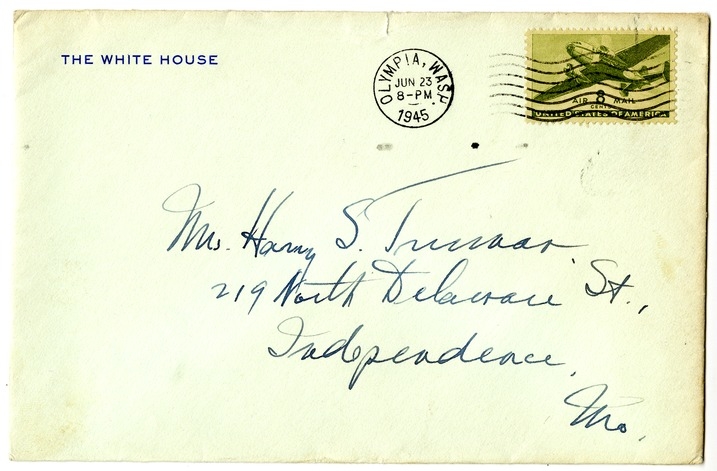 THE WHITE HOUSE
OLYMPIA, WASH.
JUN 23
8-PM
1945
AIR 8 MAIL
CENTS
UNITED STATES OF AMERICA
Mrs. Harry S. Truman
219 North Delaware St.,
Independence,
Mo.